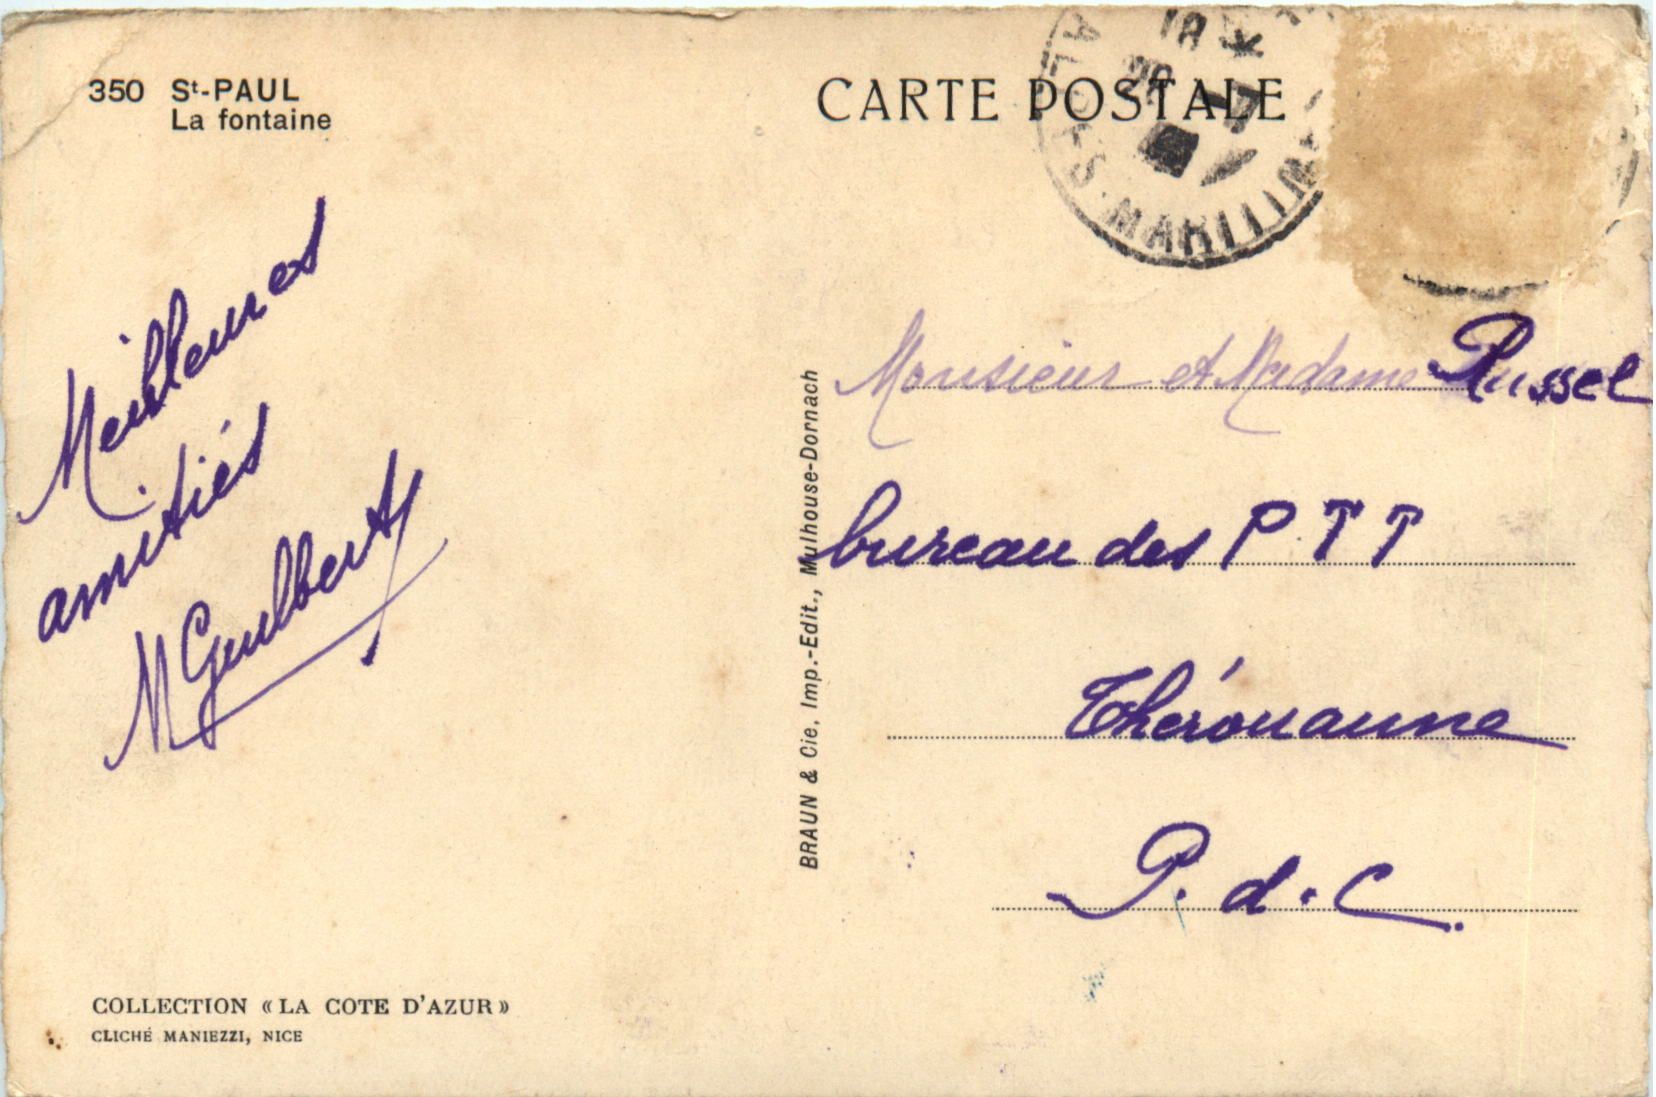 350 St-PAUL
La fontaine
CARTE POSTALE
ALPES-MARITIMES
Meilleures
amitiés
M Guilbert
Monsieur et Madame Russel
bureau des P.T T
Thérouanne
P. d. C.
BRAUN & Cie. Imp.-Edit., Mulhouse-Dornach
COLLECTION « LA COTE D'AZUR »
CLICHÉ MANIEZZI, NICE